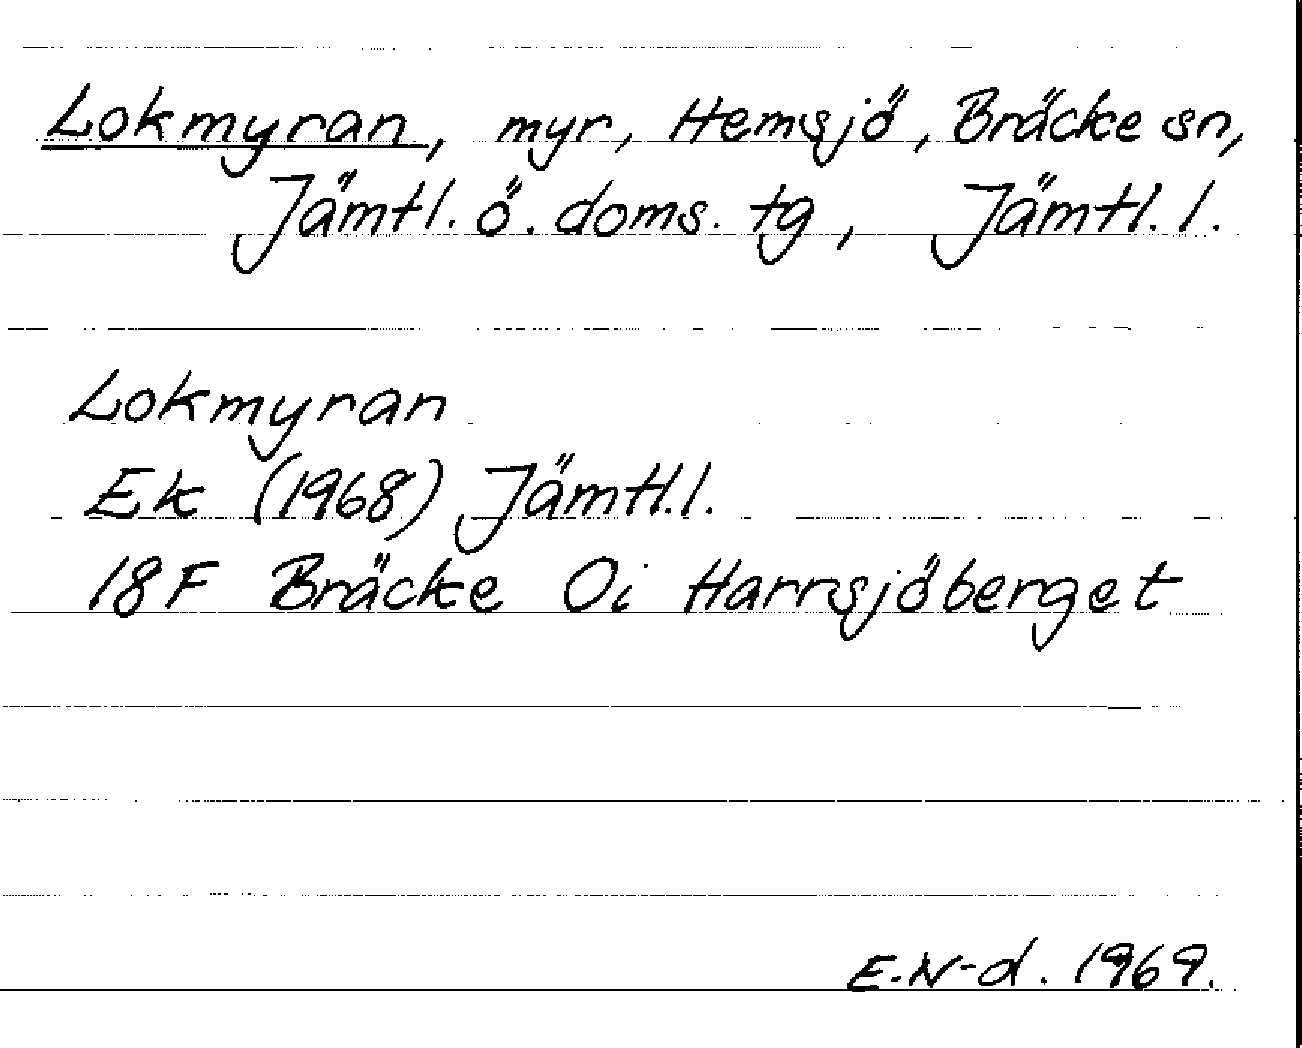 Lokmyran, myr, Hemsjö, Bräcke sn,
Jämtl. ö. doms. tg, Jämtl. l.
Lokmyran
Ek (1968) Jämtl. l.
18F Bräcke 0i Harrsjöberget
E.N-d. 1969.